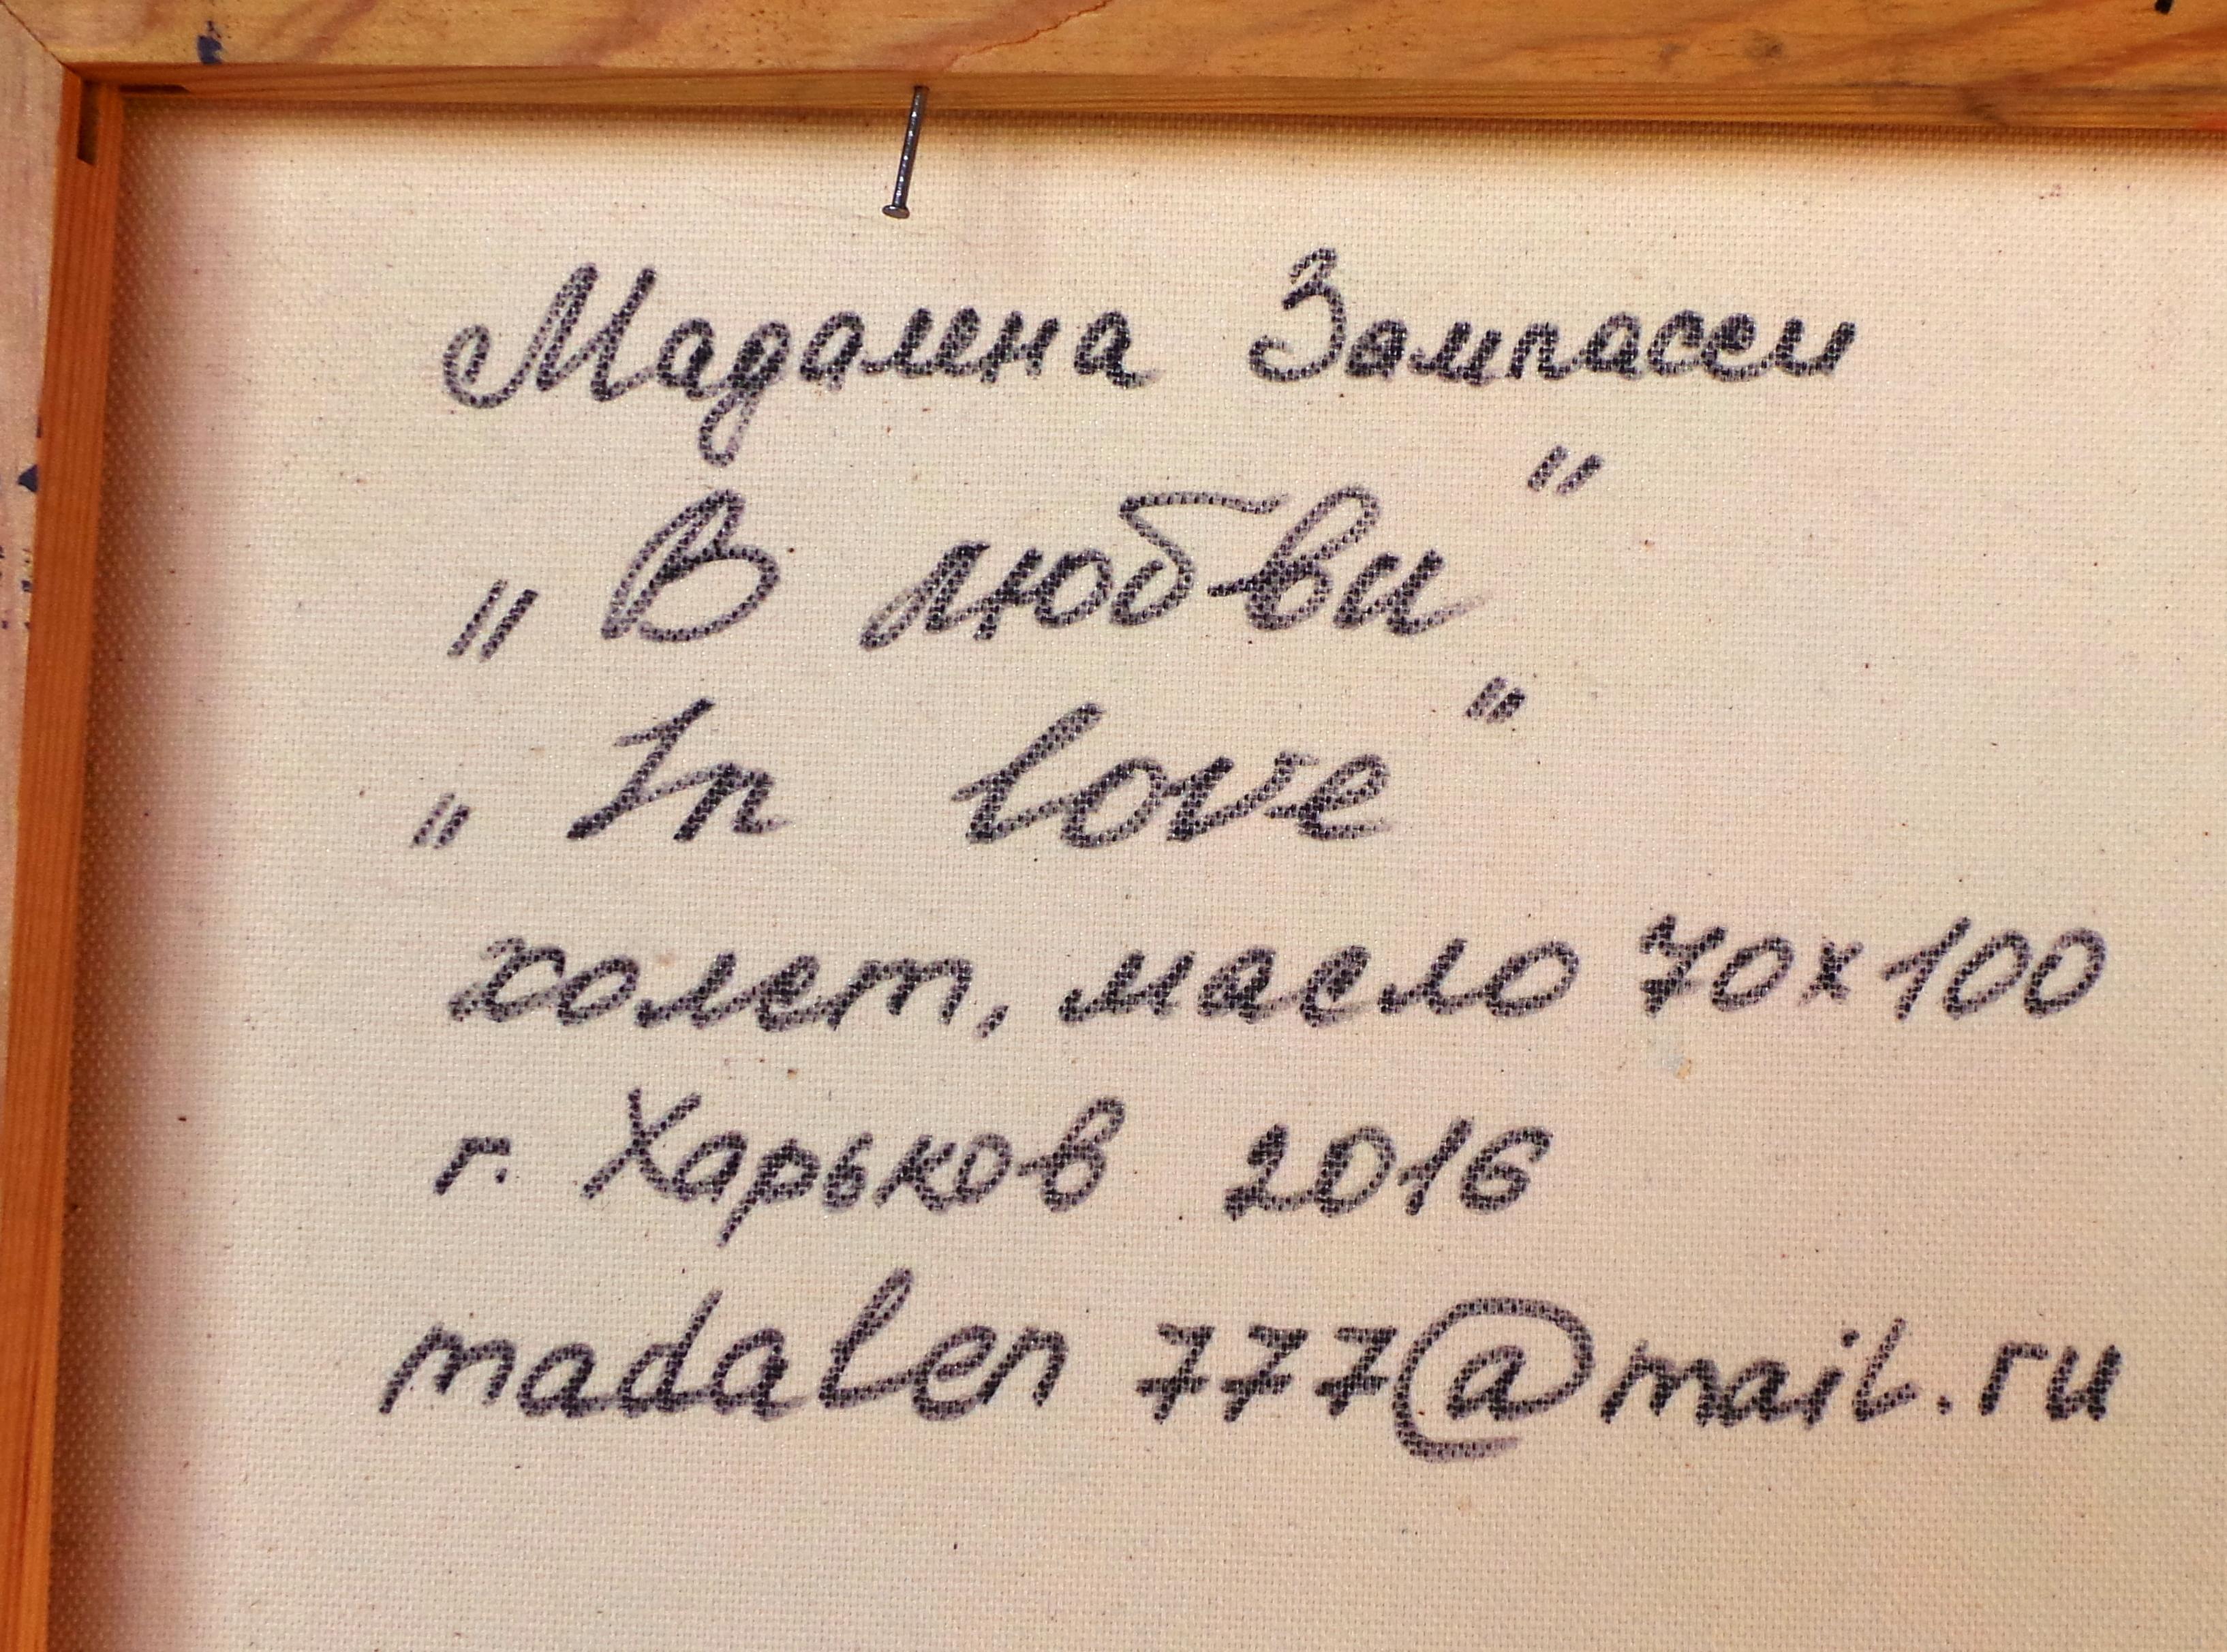 Мадалена Зампасси
„В любви"
„In love"
холст, масло 70x100
г. Харьков 2016
madalen 777@mail.ru